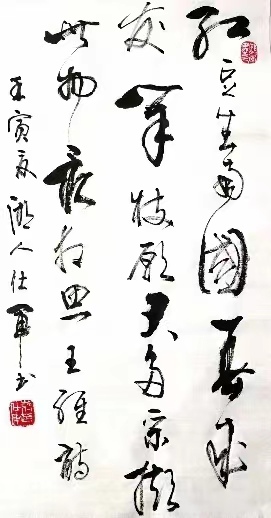 红豆生南國春来
发幾枝愿君多采撷
此物最相思王维诗
壬寅夏人仕軍书